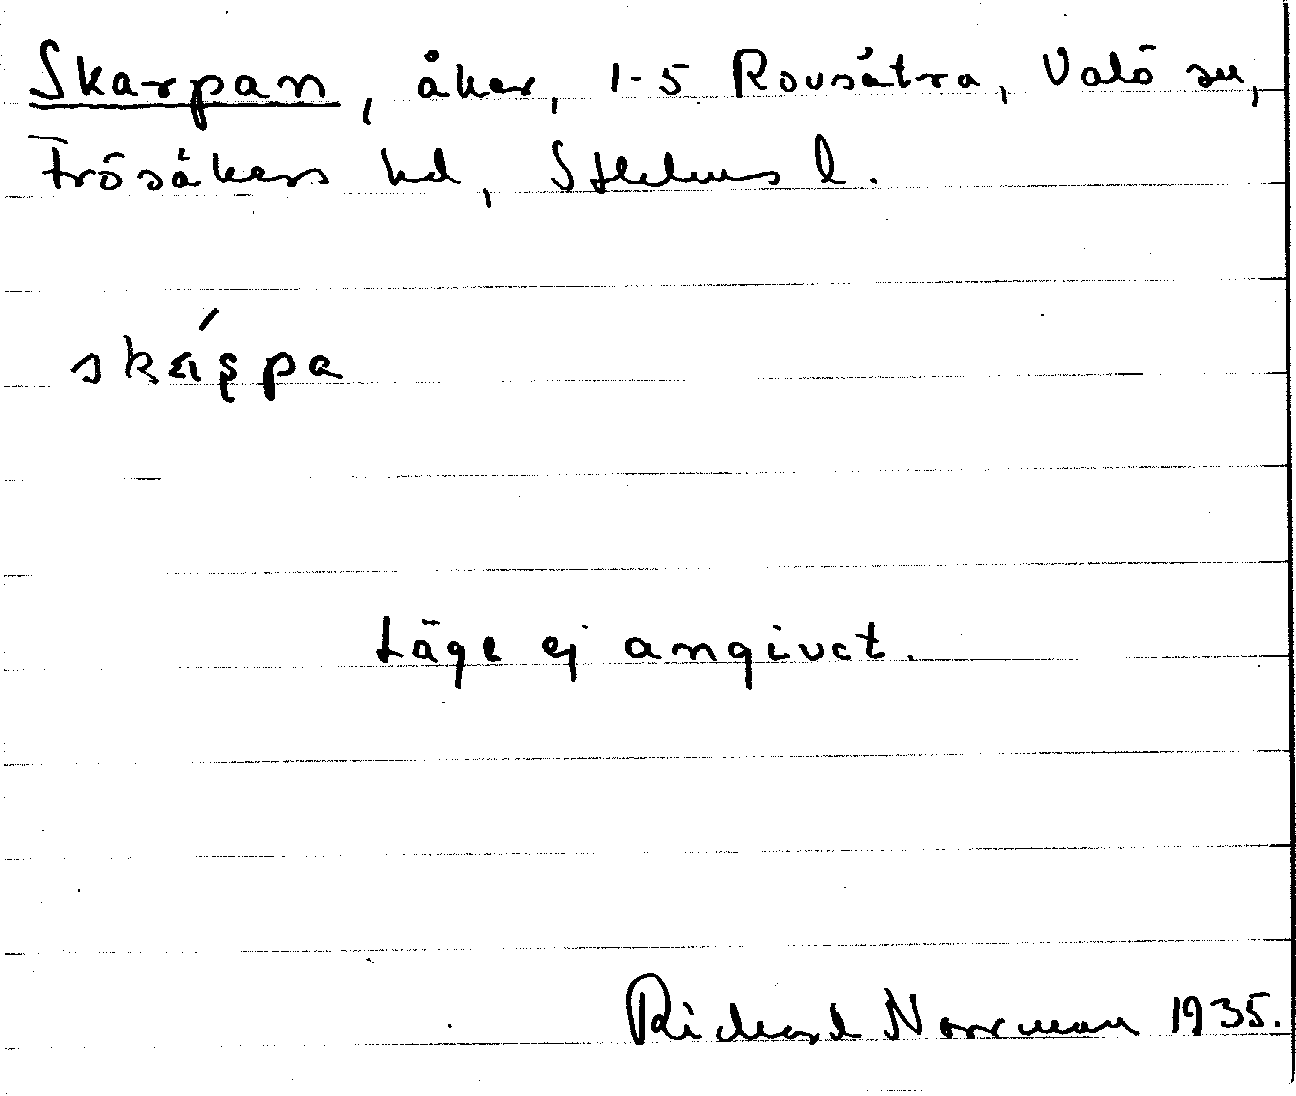 Skarpan, åker, 1-5 Rovsätra, Valö sn,
Frösåkers hd, Sthlms l.
skáʂpa
Läge ej angivet.
Richard Norrman 1935.